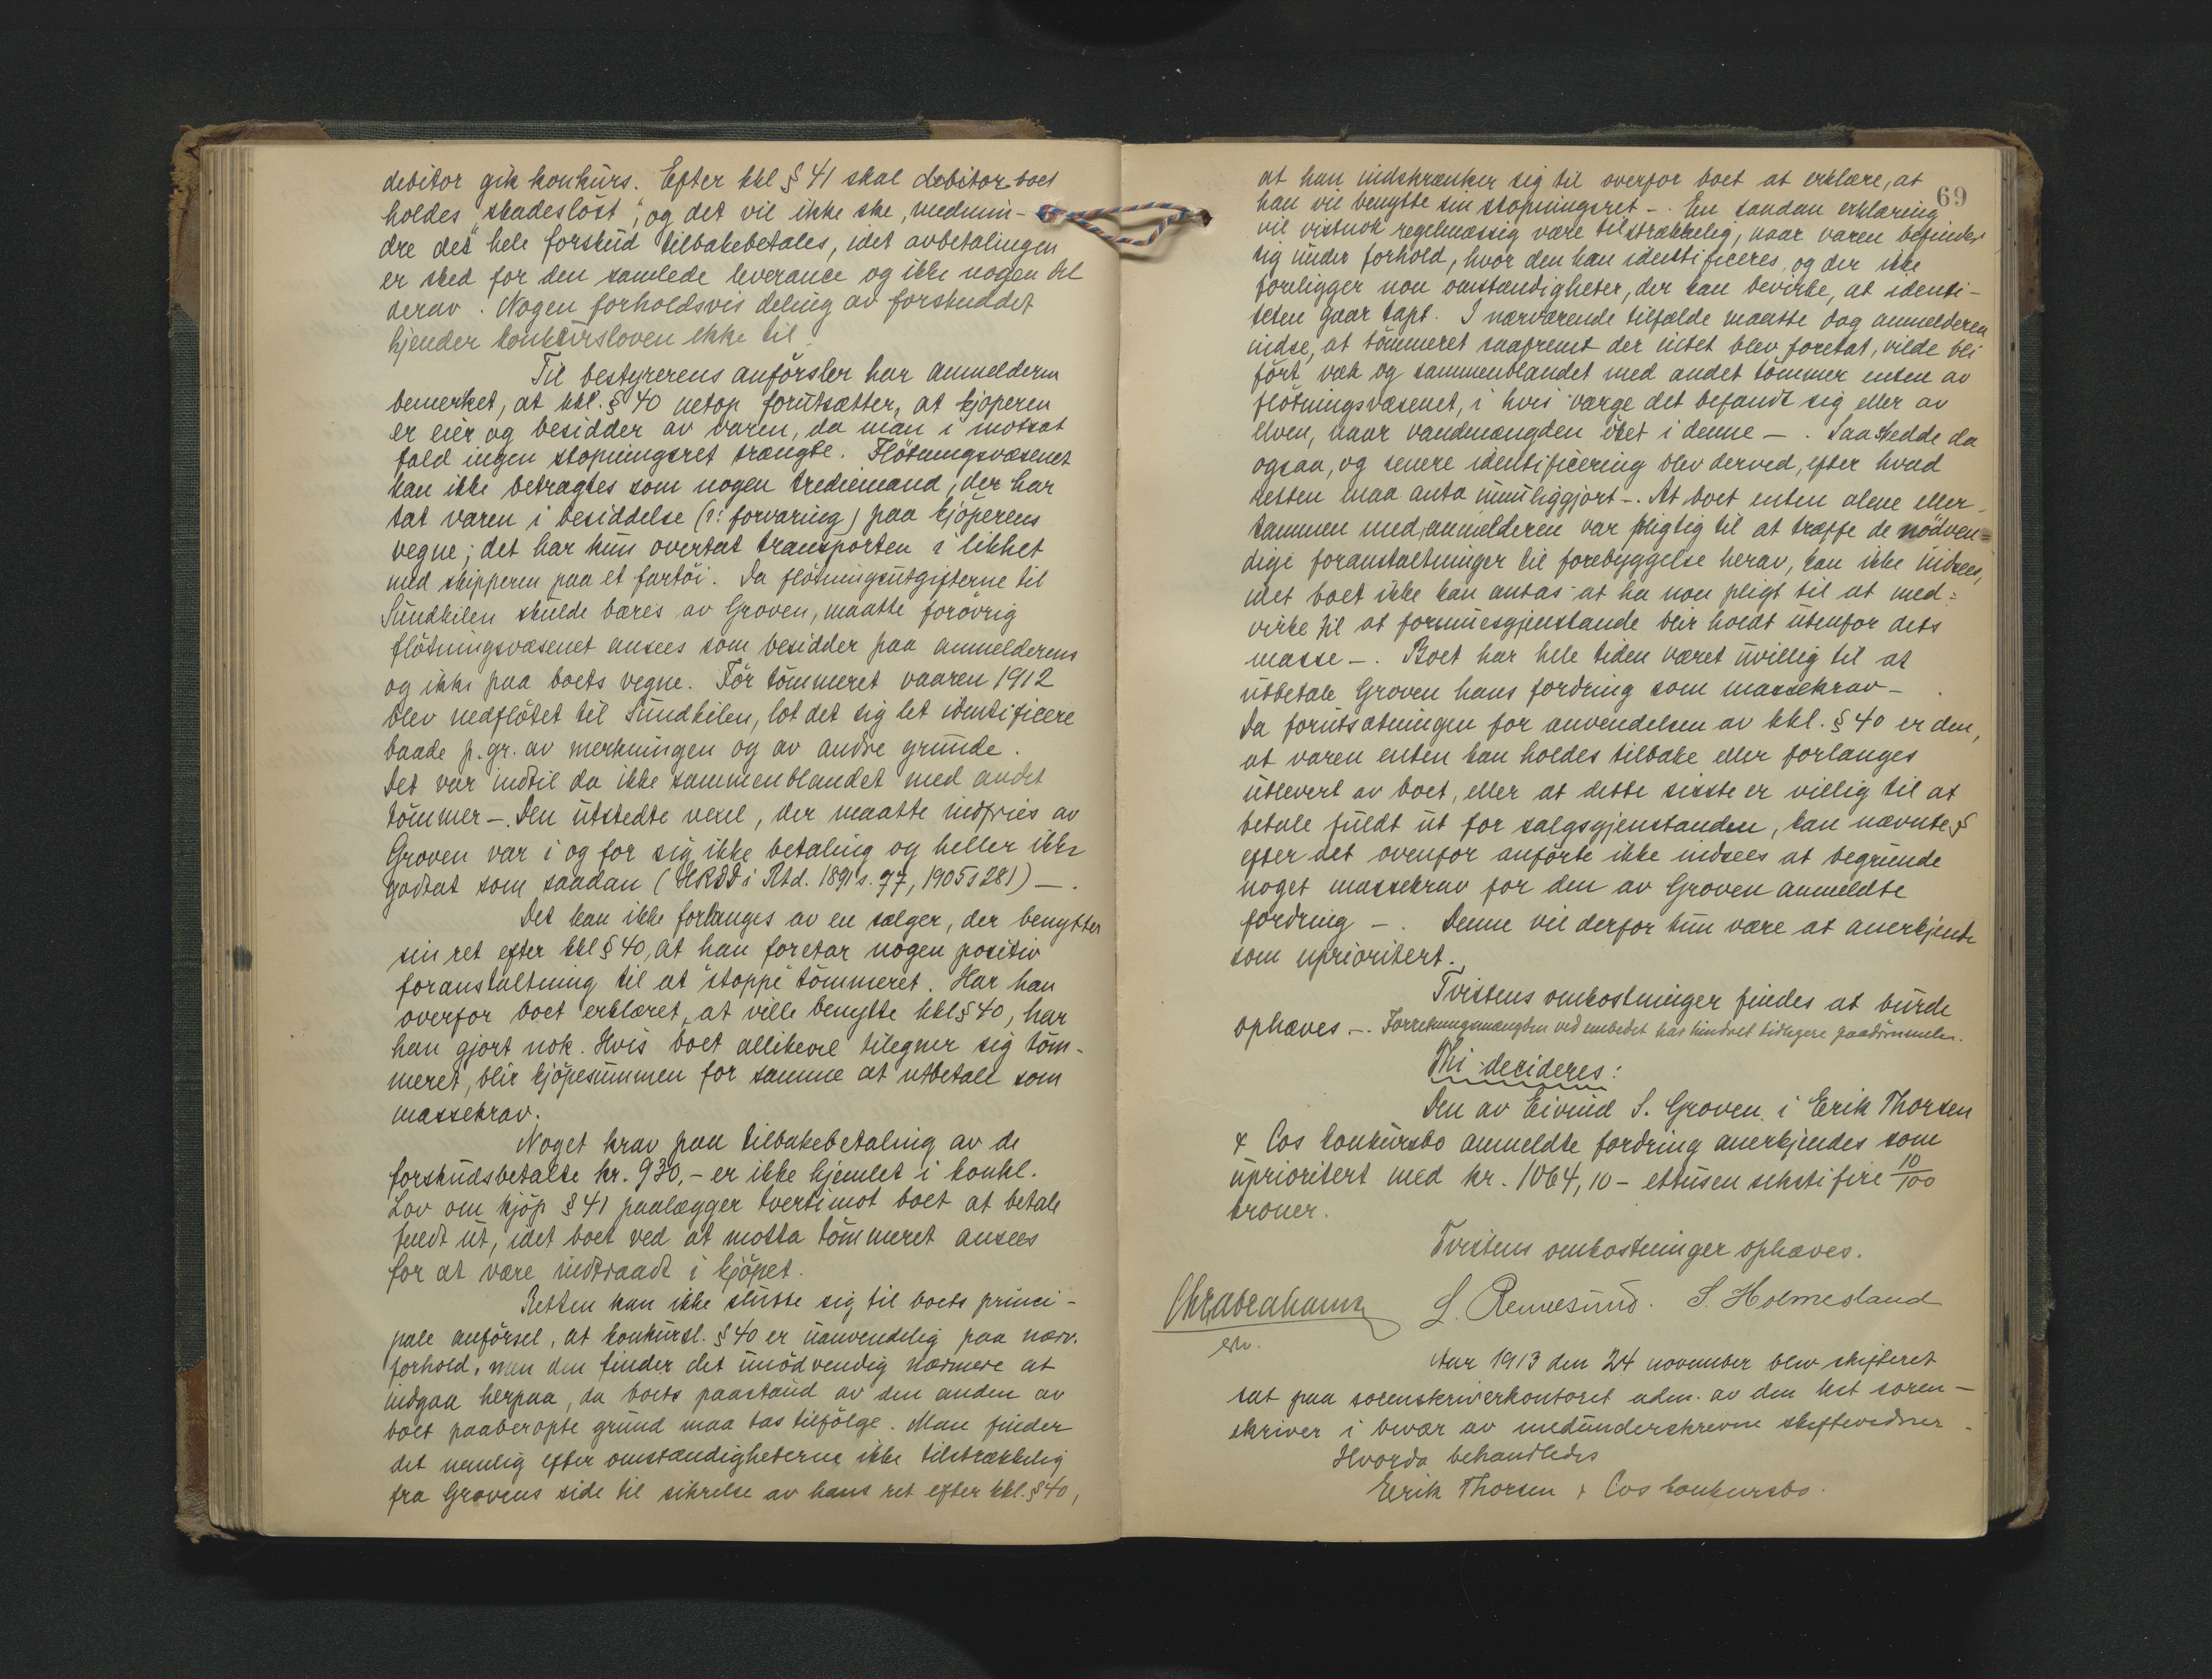 debitor gik konkurs. Efter kkl § 41 skal debitor boet
holdes "skadesløst", og det vil ikke ske, medmin-
dre det hele forskud tilbakebetales, idet avbetalingen
er sked for den samlede leverance og ikke nogen del
derav. Nogen forholdsvis deling av forskuddet
kjender konkursloven ikke til.
Til bestyrerens anførsler har anmelderen
bemerket, at kkl. § 40 netop forutsætter, at kjøperen
er eier og besidder av varen, da man i motsat
fald ingen stopningsret trængte. Fløtningsvæsenet
kan ikke betragtes som nogen trediemand, der har
tat varen i besiddelse (ɔ: forvaring) paa kjøperens
vegne; det har kun overtat transporten i likhet
med skipperen paa et fartøi. Da fløtningsutgifterne til
Sundkilen skulde bæres av Groven, maatte forøvrig
fløtningsvæsenet ansees som besidder paa anmelderens
og ikke paa boets vegne. Før tømmeret vaaren 1912
blev nedfløtet til Sundkilen, lot det sig let identificere
baade p. gr. av merkningen og av andre grunde.
Det var indtil da ikke sammenblandet med andet
tømmer –. Den utstedte vexel, der maatte indfries av
Groven var i og for sig ikke betaling og heller ikke
godtat som saadan (HRDD i Rtd. 1891 s. 77, 1905 s 281) – .
Det kan ikke forlanges av en sælger, der benytter
sin ret efter kkl § 40, at han foretar nogen positiv
foranstaltning til at "stoppe" tømmeret. Har han
overfor boet erklæret, at ville benytte kkl § 40, har
han gjort nok. Hvis boet allikevel tilegner sig tøm-
meret, blir kjøpesummen for samme at utbetale som
massekrav.
Noget krav paa tilbakebetaling av de
forskudsbetalte kr. 930,- er ikke hjemlet i konkl.
Lov om kjøp § 41 paalægger tvertimot boet at betale
fuldt ut, idet boet ved at motta tømmeret ansees
for at være indtraadt i kjøpet.
Retten kan ikke slutte sig til boets princi-
pale anførsel, at konkursl. § 40 er uanvendelig paa nærv.
forhold, men den finder det unødvendig nærmere at
indgaa herpaa, da boets paastand av den anden av
boet paaberopte grund maa tas tilfølge. Man finder
det nemlig efter omstændigheterne ikke tilstrækkelig
fra Grovens side til sikrelse av hans ret efter kkl. § 40,
69
at han indskrænker sig til overfor boet at erklære, at
han vil benytte sin stopningsret –. En saadan erklæring
vil vistnok regelmæssig være tilstrækkelig, naar varen befinder
sig under forhold, hvor den kan identificeres, og der ikke
foreligger non omstændigheter, der kan bevirke, at identi-
teten gaar tapt. I nærværende tilfælde maatte dog anmelderen
indse, at tømmeret saafremt der intet blev foretat, vilde bli
ført væk og sammenblandet med andet tømmer enten av
fløtningsvæsenet, i hvis værge det befandt sig eller av
elven, naar vandmængden øket i denne – . Saa skedde da
ogsaa, og senere identificering blev derved, efter hvad
retten maa anta umuliggjort –. At boet enten alene eller
sammen med anmelderen var pligtig til at træffe de nødven=
dige foranstaltninger til forebyggelse herav, kan ikke indsees,
idet boet ikke kan antas at ha non pligt til at med=
virke til at formuesgjenstande blir holdt utenfor dets
masse –. Boet har hele tiden været uvillig til at
utbetale Groven hans fordring som massekrav – .
Da forutsætningen for anvendelsen av kkl. § 40 er den,
at varen enten kan holdes tilbake eller forlanges
utlevert av boet, eller at dette sidste er villig til at
betale fuldt ut for salgsgjenstanden, kan nævnte §
efter det ovenfor anførte ikke indsees at begrunde
noget massekrav for den av Groven anmeldte
fordring – . Denne vil derfor kun være at anerkjende
som uprioritert.
Tvistens omkostninger findes at burde
ophæves –. Forretningsmængden ved embedet har hindret tidligere paadømmelse.
Thi decideres:
Den av Eivind S. Groven i Erik Thorsen
& Cos konkursbo anmeldte fordring anerkjendes som
uprioritert med kr. 1064,10 – ettusen sekstifire 10/100
kroner.
Tvistens omkostninger ophæves.
Chr Abrahams
S. Holmesland
Aar 1913 den 24 november blev skifteret
sat paa sorenskriverkontoret adm. av den kst soren-
skriver i overvær av medunderskrevne skiftevidner.
Hvorda behandledes
Erik Thorsen & Cos konkursbo.